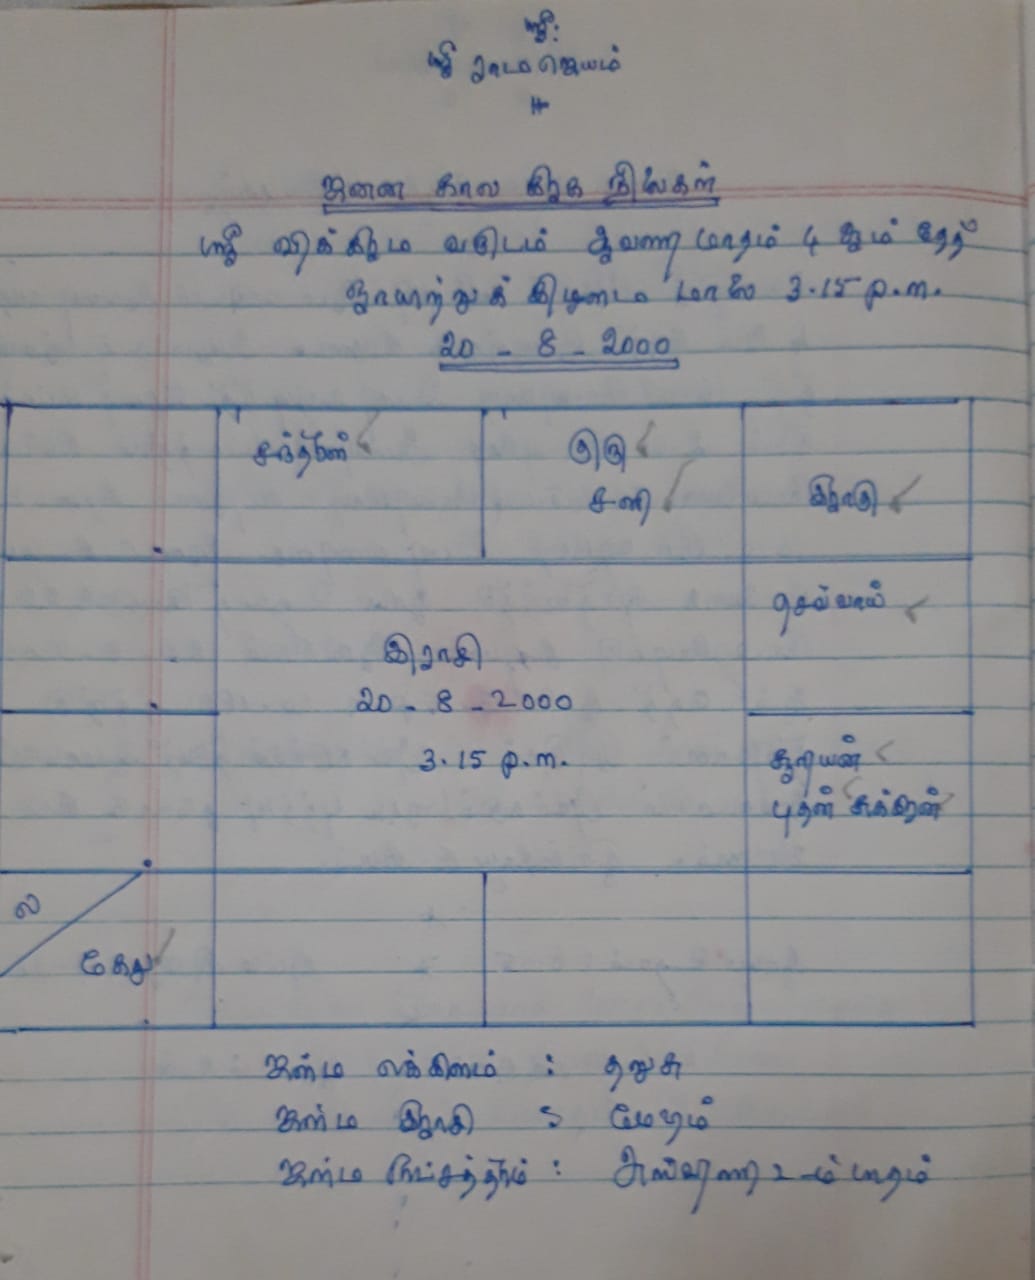 ஸ்ரீ:
ஸ்ரீ ராமஜெயம்
ஜனன கால கிரக நிலைகள்
ஸ்ரீ விக்கிரம வருடம் ஆவணி மாதம் 4 ஆம் தேதி
ஞாயாற்றுக் கிழமை மாலை 3.15 p.m.
20 - 8 - 2000
சந்திரன்
குரு
சனி
இராகு
செவ்வாய்
இராசி
20 - 8 - 2000
3.15 p.m.
சூரியன்
புதன் சுக்கிரன்
ல
கேது
ஜன்ம லக்கினம் : தனுசு
ஜன்ம இராசி : மேஷம்
ஜன்ம நட்சத்திரம் : அஸ்வினி 2-ம் பாதம்